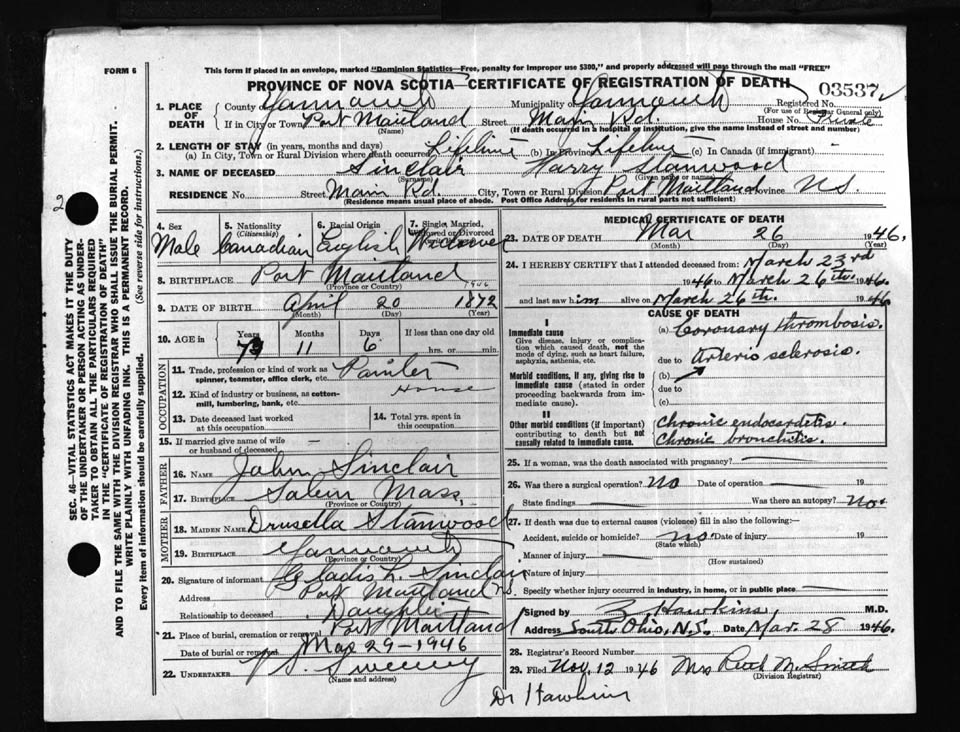 FORM 6
This form if placed in an envelope, marked "Dominion Statistics—Free, penalty for improper use $300," and properly addressed will pass through the mail "FREE"
PROVINCE OF NOVA SCOTIA—CERTIFICATE OF REGISTRATION OF DEATH
03537
1. PLACE OF DEATH County of Yarmouth Municipality of Yarmouth Registered No.
(For use of Registrar General only)
If in City or Town Port Maitland Street Main Rd. House No. Private
(Name) (If death occurred in a hospital or institution, give the name instead of street and number)
2. LENGTH OF STAY (in years, months and days)
(a) In City, Town or Rural Division where death occurred Lifetime (b) In Province Lifetime (c) In Canada (if immigrant)
3. NAME OF DECEASED Sinclair Harry Stanwood
(Surname) (Given name or names)
RESIDENCE No. Street Main Rd. City, Town or Rural Division Port Maitland Province N.S.
(Residence means usual place of abode. Post Office Address for residents in rural parts not sufficient)
4. Sex 5. Nationality (Citizenship) 6. Racial Origin 7. Single, Married, Widowed or Divorced
Male Canadian English Widower
8. BIRTHPLACE Port Maitland
(Province or Country)
9. DATE OF BIRTH April 20 1872
(Month) (Day) (Year)
10. AGE in Years Months Days If less than one day old
73 11 6 hrs. or min.
OCCUPATION
11. Trade, profession or kind of work as spinner, teamster, office clerk, etc. Painter
12. Kind of industry or business, as cotton-mill, lumbering, bank, etc. House
13. Date deceased last worked at this occupation
14. Total yrs. spent in this occupation
15. If married give name of wife or husband of deceased —
FATHER
16. NAME John Sinclair
17. Birthplace Salem Mass.
(Province or Country)
MOTHER
18. MAIDEN NAME Drusella Stanwood
19. BIRTHPLACE Yarmouth
(Province or Country)
20. Signature of informant Gladis L. Sinclair
Address Port Maitland N.S.
Relationship to deceased Daughter
21. Place of burial, cremation or removal Port Maitland
Date of burial or removal Mar 29-1946
22. UNDERTAKER Sweeny
(Name and address)
MEDICAL CERTIFICATE OF DEATH
23. DATE OF DEATH Mar 26 1946.
(Month) (Day) (Year)
24. I HEREBY CERTIFY that I attended deceased from: March 23rd
1946 to March 26th. 1946.
and last saw him alive on March 26th. 1946
CAUSE OF DEATH
I
Immediate cause
Give disease, injury or complication which caused death, not the mode of dying, such as heart failure, asphyxia, asthenia, etc.
(a) Coronary thrombosis.
due to Arterio sclerosis.
Morbid conditions, if any, giving rise to immediate cause (stated in order proceeding backwards from immediate cause).
(b)
due to
(c)
II
Other morbid conditions (if important) contributing to death but not causally related to immediate cause.
Chronic endocarditis.
Chronic bronchitis.
25. If a woman, was the death associated with pregnancy? —
26. Was there a surgical operation? No Date of operation — 19
State findings — Was there an autopsy? No.
27. If death was due to external causes (violence) fill in also the following:—
Accident, suicide or homicide? no. Date of injury 19
(State which)
Manner of injury —
(How sustained)
Nature of injury —
Specify whether injury occurred in industry, in home, or in public place —
Signed by Z. Hawkins, M.D.
Address South Ohio, N.S. Date Mar. 28 1946.
28. Registrar's Record Number
29. Filed Nov. 12 1946 Mrs Ruth M. Smith
(Division Registrar)
Dr Hawkins
SEC. 46—VITAL STATISTICS ACT MAKES IT THE DUTY
OF THE UNDERTAKER OR PERSON ACTING AS UNDER-
TAKER TO OBTAIN ALL THE PARTICULARS REQUIRED
IN THE "CERTIFICATE OF REGISTRATION OF DEATH"
AND TO FILE THE SAME WITH THE DIVISION REGISTRAR WHO SHALL ISSUE THE BURIAL PERMIT.
WRITE PLAINLY WITH UNFADING INK. THIS IS A PERMANENT RECORD.
Every item of information should be carefully supplied.
(See reverse side for instructions.)
2